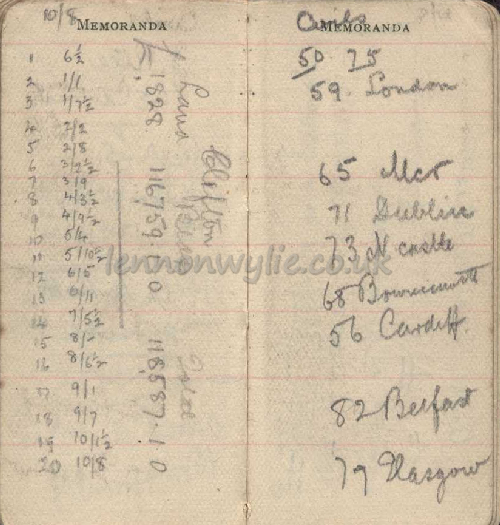 10/8
MEMORANDA
1 6½
2 1/1
3 1/7½
4 2/2
5 2/8
6 3/2½
7 3/9
8 4/3½
9 4/9½
10 5/4
11 5/10½
12 6/5
13 6/11
14 7/5½
15 8/-
16 8/6½
17 9/1
18 9/7
19 10/1½
20 10/8
Land
1828
Clifton
116759.0.0
Total
118587.1.0
MEMORANDA
50 75
59. London
65 Mcr
71 Dublin
73 N castle
68 Bournemouth
56 Cardiff.
82 Belfast
79 Glasgow
lennonwylie.co.uk